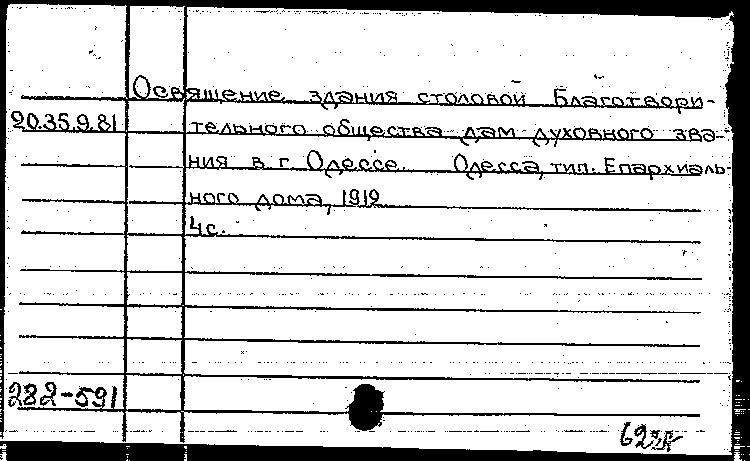 Освящение здания столовой Благотвори-
20.35.9.81 тельного общества дам духовного зва-
ния в г. Одессе. Одесса, тип. Епархиаль-
ного дома, 1912
4с.
282-591